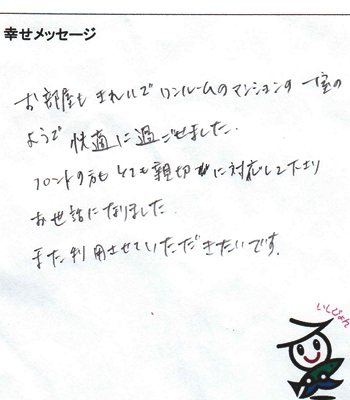 幸せメッセージ
お部屋も きれいで ワンルームのマンションの 一室の
ようで 快適に過ごせました.
フロントの方も とても 親切に対応して下さり
お世話になりました.
また利用させていただきたいです.
いしぴょん